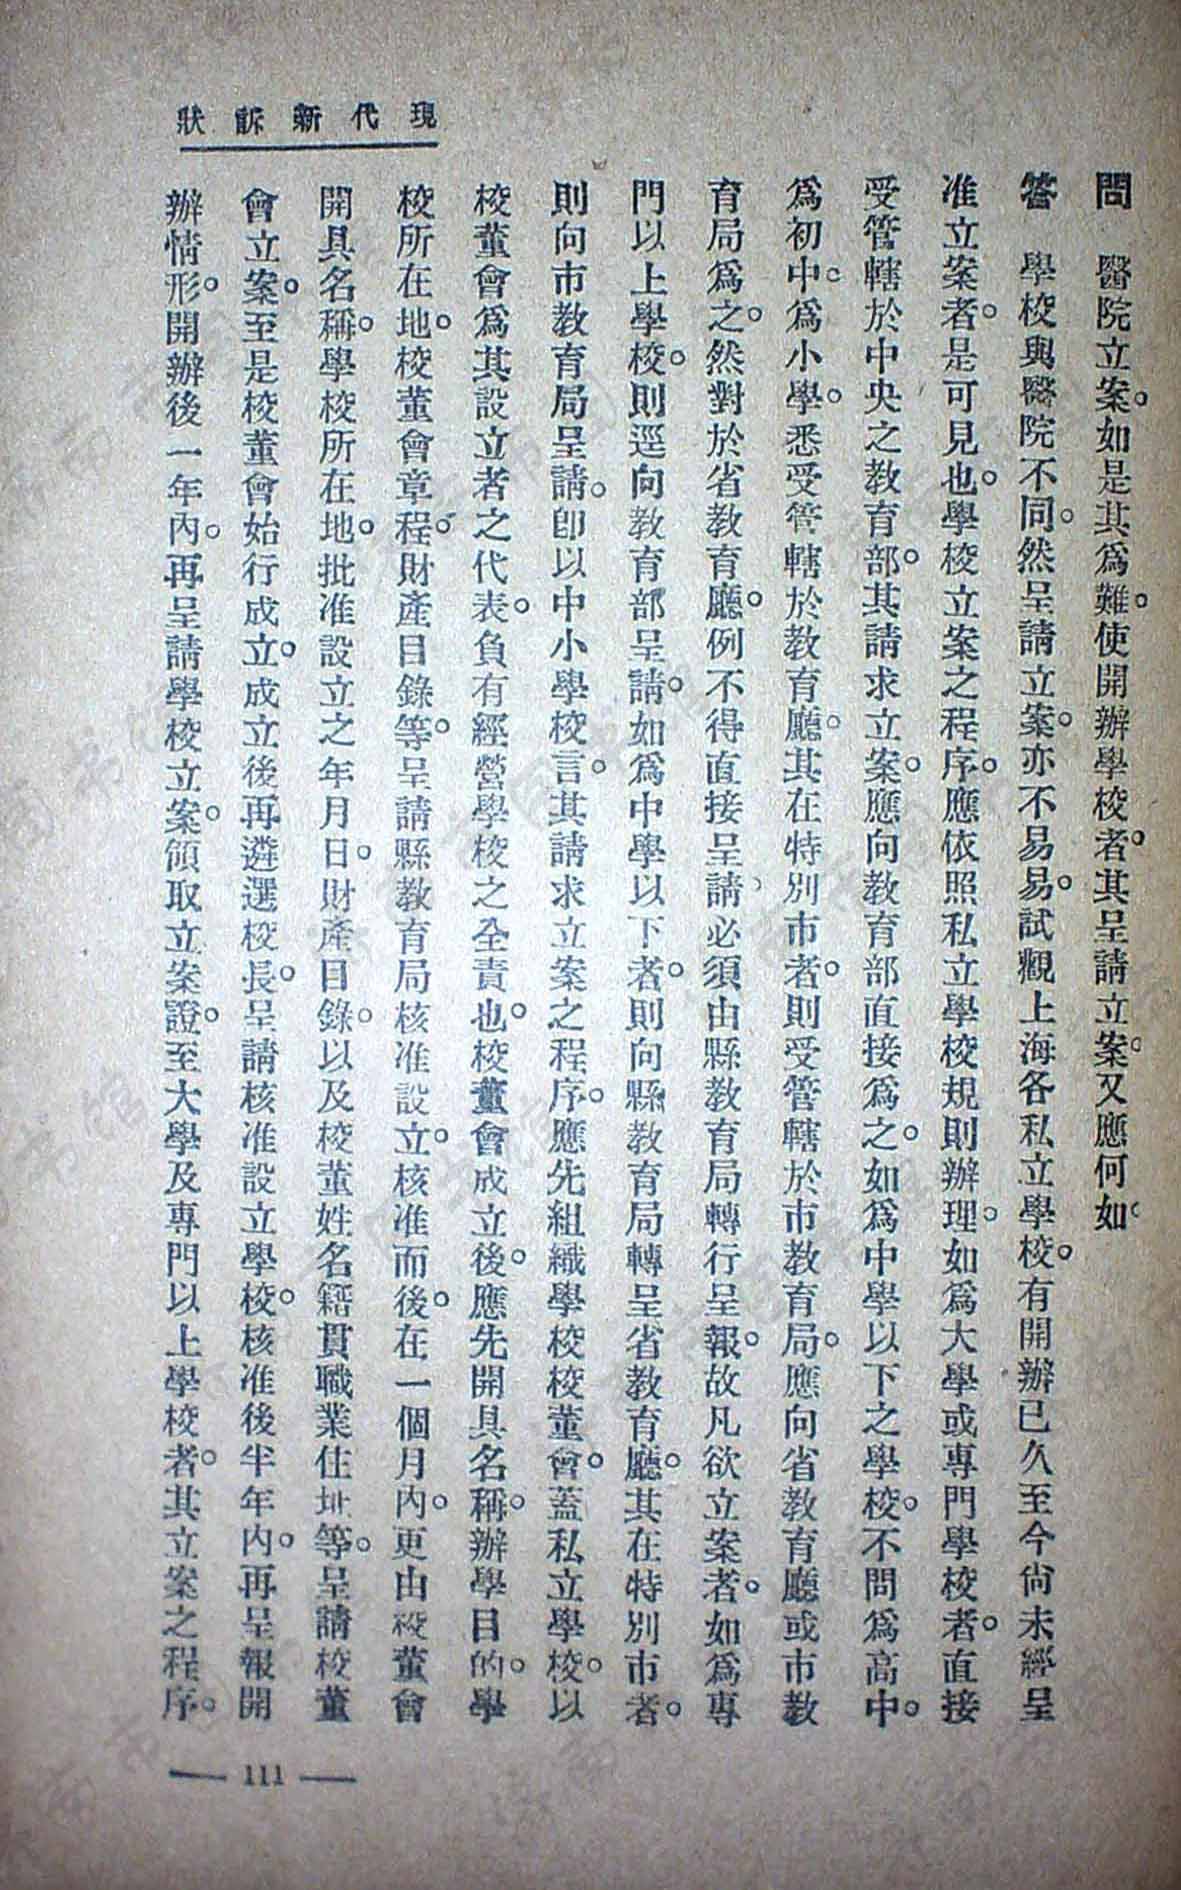 現代新訴狀
問　醫院立案。如是其爲難。使開辦學校者。其呈請立案。又應何如。
答　學校與醫院不同。然呈請立案。亦不易易。試觀上海各私立學校。有開辦已久至今尙未經呈
准立案者。是可見也。學校立案之程序。應依照私立學校規則辦理。如爲大學或專門學校者。直接
受管轄於中央之教育部。其請求立案。應向教育部直接爲之。如爲中學以下之學校。不問爲高中。
爲初中。爲小學。悉受管轄於教育廳。其在特別市者。則受管轄於市教育局。應向省教育廳或市教
育局爲之。然對於省教育廳。例不得直接呈請、必須由縣教育局轉行呈報。故凡欲立案者。如爲專
門以上學校。則逕向教育部呈請。如爲中學以下者。則向縣教育局轉呈省教育廳。其在特別市者。
則向市教育局呈請。卽以中小學校言。其請求立案之程序。應先組織學校校董會。蓋私立學校。以
校董會爲其設立者之代表。負有經營學校之全責也。校董會成立後。應先開具名稱。辦學目的。學
校所在地。校董會章程。財產目錄等。呈請縣教育局核准設立。核准而後。在一個月內。更由校董會
開具名稱。學校所在地。批准設立之年月日。財產目錄。以及校董姓名籍貫職業住址等。呈請校董
會立案。至是校董會始行成立。成立後再遴選校長。呈請核准設立學校。核准後半年內。再呈報開
辦情形。開辦後一年內。再呈請學校立案。領取立案證。至大學及專門以上學校者。其立案之程序。
— 111 —